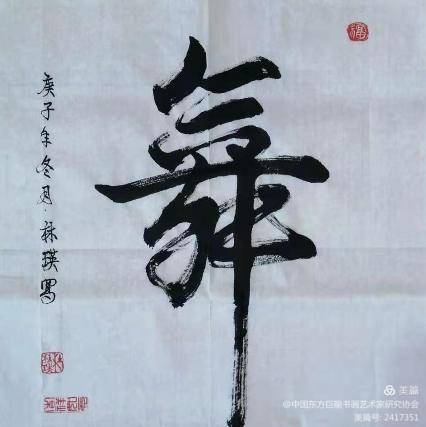 舞
庚子年冬月·林瑛写
美篇
@中国东方巨龍书画艺术家研究协会
美篇号: 2417351